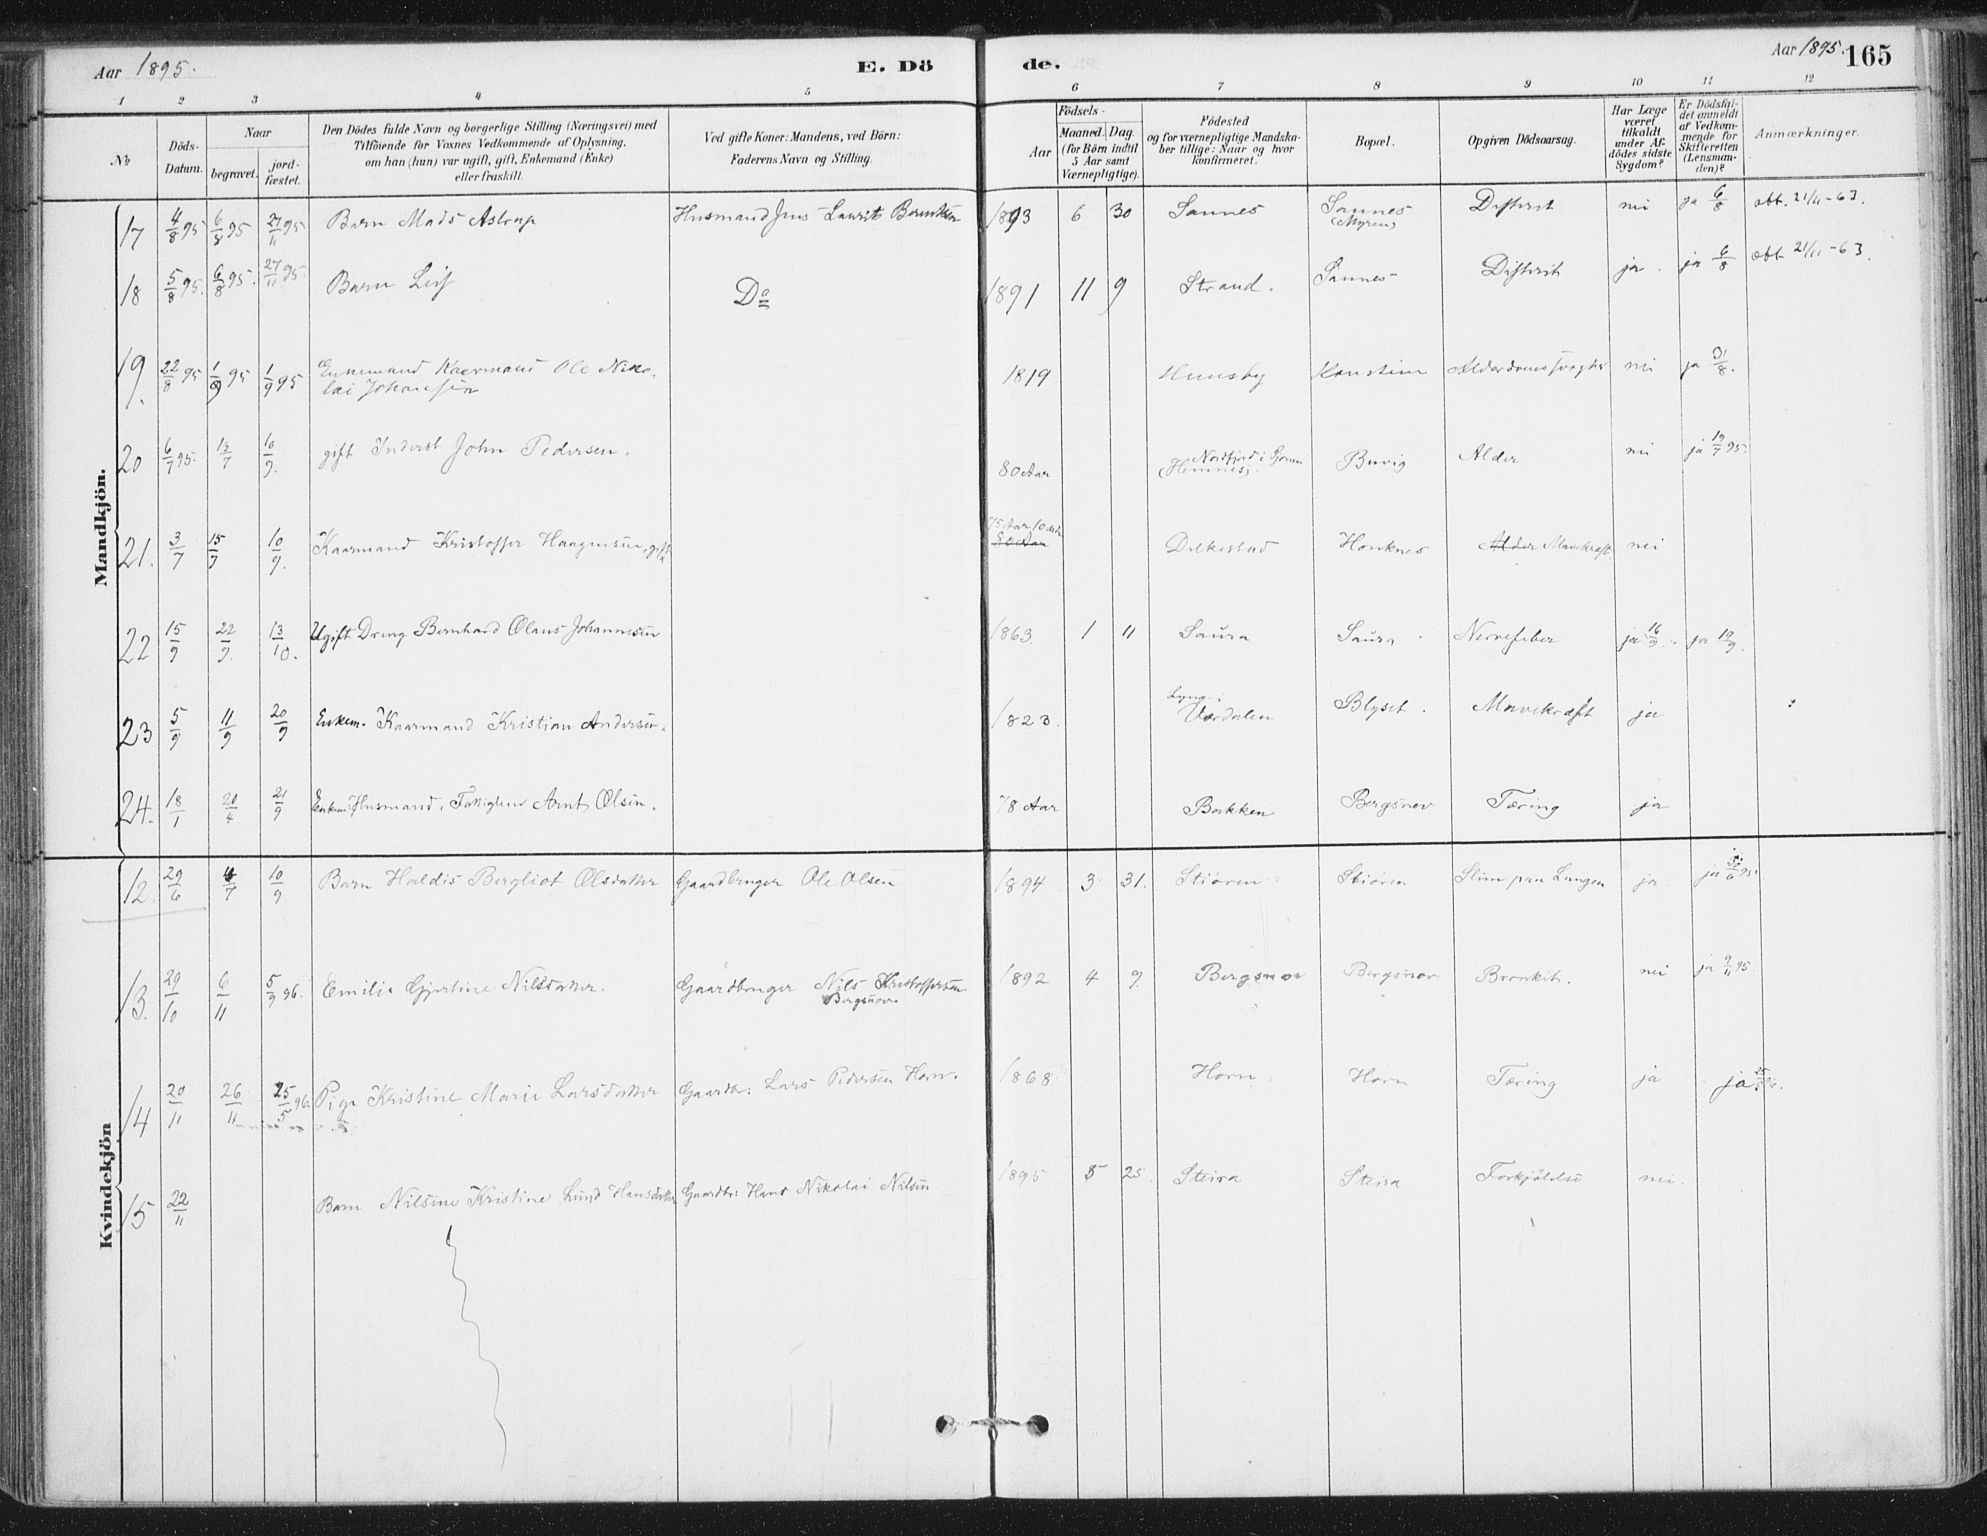 Aar 1895.
E. Dö de.
Aar 1895. 165
1 2 3 4 5 6 7 8 9 10 11 12
No
Döds-Datum.
Naar
begravet.
jord-fæstet.
Den Dödes fulde Navn og borgerlige Stilling (Næringsvei) med
Tilföiende for Voxnes Vedkommende af Oplysning,
om han (hun) var ugift, gift, Enkemand (Enke)
eller fraskilt.
Ved gifte Koner: Mandens, ved Börn:
Faderens Navn og Stilling.
Födsels-
Aar
Maaned. Dag.
(for Börn indtil
5 Aar samt
Værnepligtige).
Födested
og for værnepligtige Mandska-
ber tillige: Naar og hvor
konfirmeret.
Bopæl.
Opgiven Dödsaarsag.
Har Læge
været
tilkaldt
under Af-
dödes sidste
Sygdom?
Er Dödsfal-
det anmeldt
af Vedkom-
mende for
Skifteretten
(Lensman-
den)?
Anmærkninger.
Mandkjön.
17 4/8 95 6/8 95 27/11 95 Barn Mads Astrup Husmand Jens Laurits 1893 6 30 Sannes Sannes (Myren) Difterit nei ja 6/8 obt. 21/11-63.
18 5/8 95. 6/8 95. 27/11 95. Barn Leif Do 1891 11 9 Strand. Sannes Difterit ja. ja 6/8 obt. 21/11-63.
19. 22/8 95 1/9 95 1/9 95 Enkemand Kaarmand Ole Niko-
lai Johansen 1819 nei ja 31/8.
20 6/7 95. 13/7 10/9. gift Inderst John Pedersen. 80 Aar Buvig Alder nei ja 19/7 95.
21. 3/7 15/7 10/9. Kaarmand Kristoffer Haagensen, gift 75 Aar 10 80 Aar Dilkestad Alder Mavekræft. nei
22 15/9 22/9. 13/10. Ugift Dreng Bernhard Olaus Johannesen 1863. 1 11 Saura Saura Nervefeber ja 16/9. ja 19/9.
23 5/9 11/9 20/9 Enkem. Kaarmand Kristian Andersen. 1823. Lyng i Værdalen Blyset. Mavekræft ja
24. 18/1 20/4 21/9 Enkem. Husmand, Fattiglem Arnt Olsen. 78 Aar Bakken Bergsnov Tæring ja
Kvindekjön
12. 29/6 4/7 10/9 Barn Haldis Bergliot Olsdatter Gaardbruger Ole Olsen 1894 3 31. Stiören Stiören Slim paa Lungen ja. ja
13. 29/10 6/11 5/9 96. Emilie Gjertine Nilsdatter. Gaardbruger Nils Kristoffersen
Bergsnov. 1892 4 9. Bergsnov Bergsnov Bronkit. nei ja 9/11 95.
14 20/11 26/11 25/5 96. Pige Kristine Marie Larsdatter Gaardb: Lars Pedersen Horn. 1868 Horn Horn Tæring ja ja
15 22/11 Barn Nilsine Kristine Lund Hansdatter Gaardbr: Hans Nikolai Nilsen 1895 5 25 Steira Steira Forkjölelse nei.